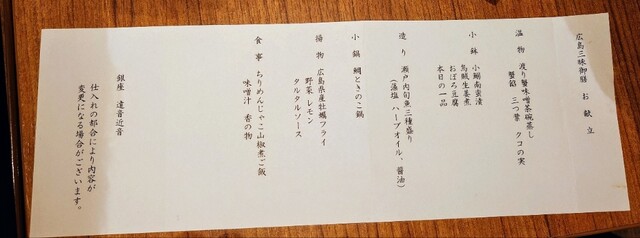 広島三昧御膳　お献立
温物　渡り蟹味噌茶碗蒸し
蟹餡　三つ葉　タコの実
小鉢　小鰯南蛮漬
烏賊生姜煮
おぼろ豆腐
本日の一品
造り　瀬戸内旬魚三種盛り
（藻塩　ハーブオイル、醤油）
小鍋　鯛ときのこ鍋
揚物　広島県産牡蠣フライ
野菜　レモン
タルタルソース
食事　ちりめんじゃこ山椒煮ご飯
味噌汁　香の物
銀座　遠音近音
仕入れの都合により内容が
変更になる場合がございます。